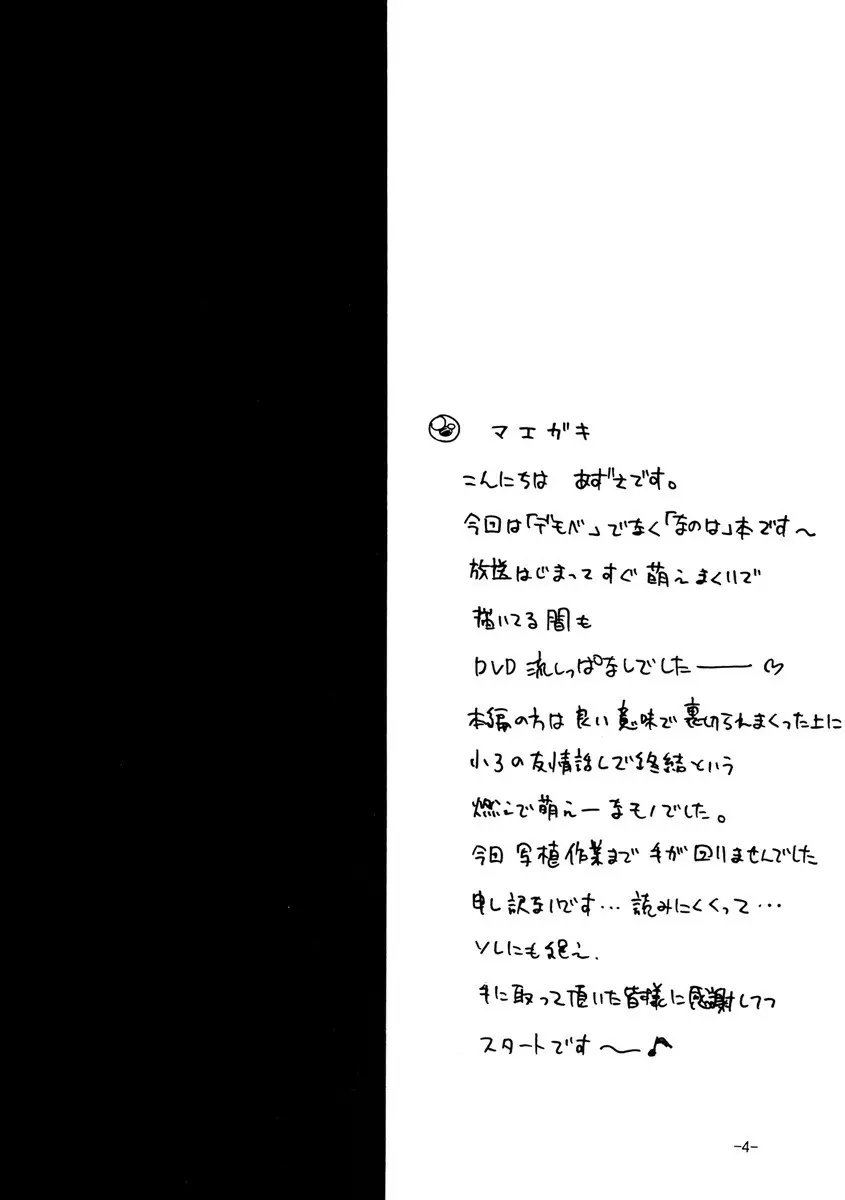 マエガキ
こんにちは あずさです。
今回は「デモベ」でなく「なのは」本です〜
放送はじまってすぐ萌えまくりで
描いてる間も
DVD 流しっぱなしでしたー♡
本編の方は良い意味で裏切られまくった上に
小3の友情話しで終結という
燃えで萌えーなモノでした。
今回 写植作業まで手が回りませんでした
申し訳ないです… 読みにくくって…
ソレにも絶え、
手に取って頂いた皆様に感謝しつつ
スタートです〜♪
-4-